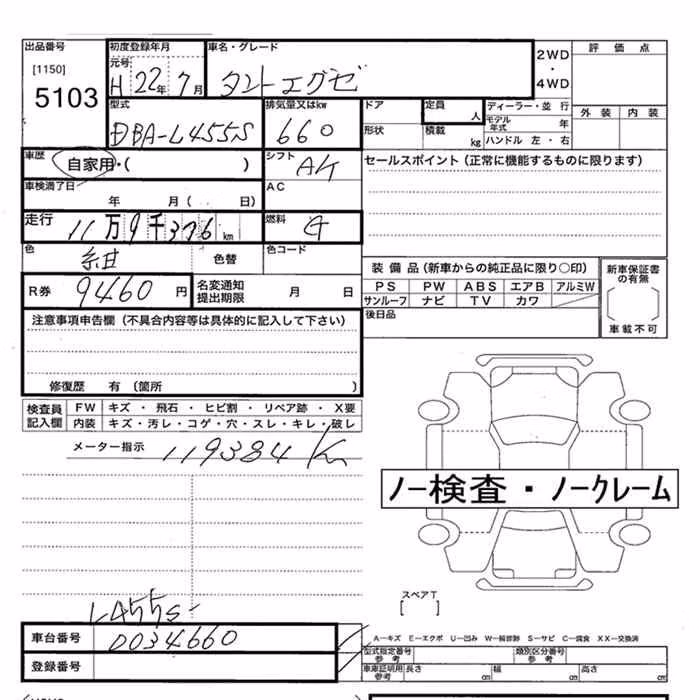 出品番号 初度登録年月 車名・グレード 2WD ・ 4WD 評価点
[1150] 元号
5103 H 22年 7月 タントエグゼ
外装 内装
型式 排気量又はkw ドア 定員 人 ディーラー・並行
DBA-L455S 660 形状 積載 kg モデル年式 年
ハンドル 左・右
車歴 自家用・( ) シフト AK セールスポイント(正常に機能するものに限ります)
車検満了日 年 月( 日) AC
走行 11万9千376km 燃料 G
色 紺 色替 色コード
装備品(新車からの純正品に限り○印) 新車保証書の有無
PS PW ABS エアB アルミW
サンルーフ ナビ TV カワ
車載不可
R券 9460円 名変通知提出期限 月 日 後日品
注意事項申告欄(不具合内容等は具体的に記入して下さい)
修復歴 有(箇所 )
検査員記入欄 FW キズ・飛石・ヒビ割・リペア跡・X要
内装 キズ・汚レ・コゲ・穴・スレ・キレ・破レ
メーター指示 119384 Km
ノー検査・ノークレーム
スペアT
[ ]
L455S-
車台番号 0034660
登録番号
A−キズ E−エクボ U−凹み W−補修跡 S−サビ C−腐食 XX−交換済
型式指定番号参考 類別区分番号参考
車庫証明用参考 長さ cm 幅 cm 高さ cm